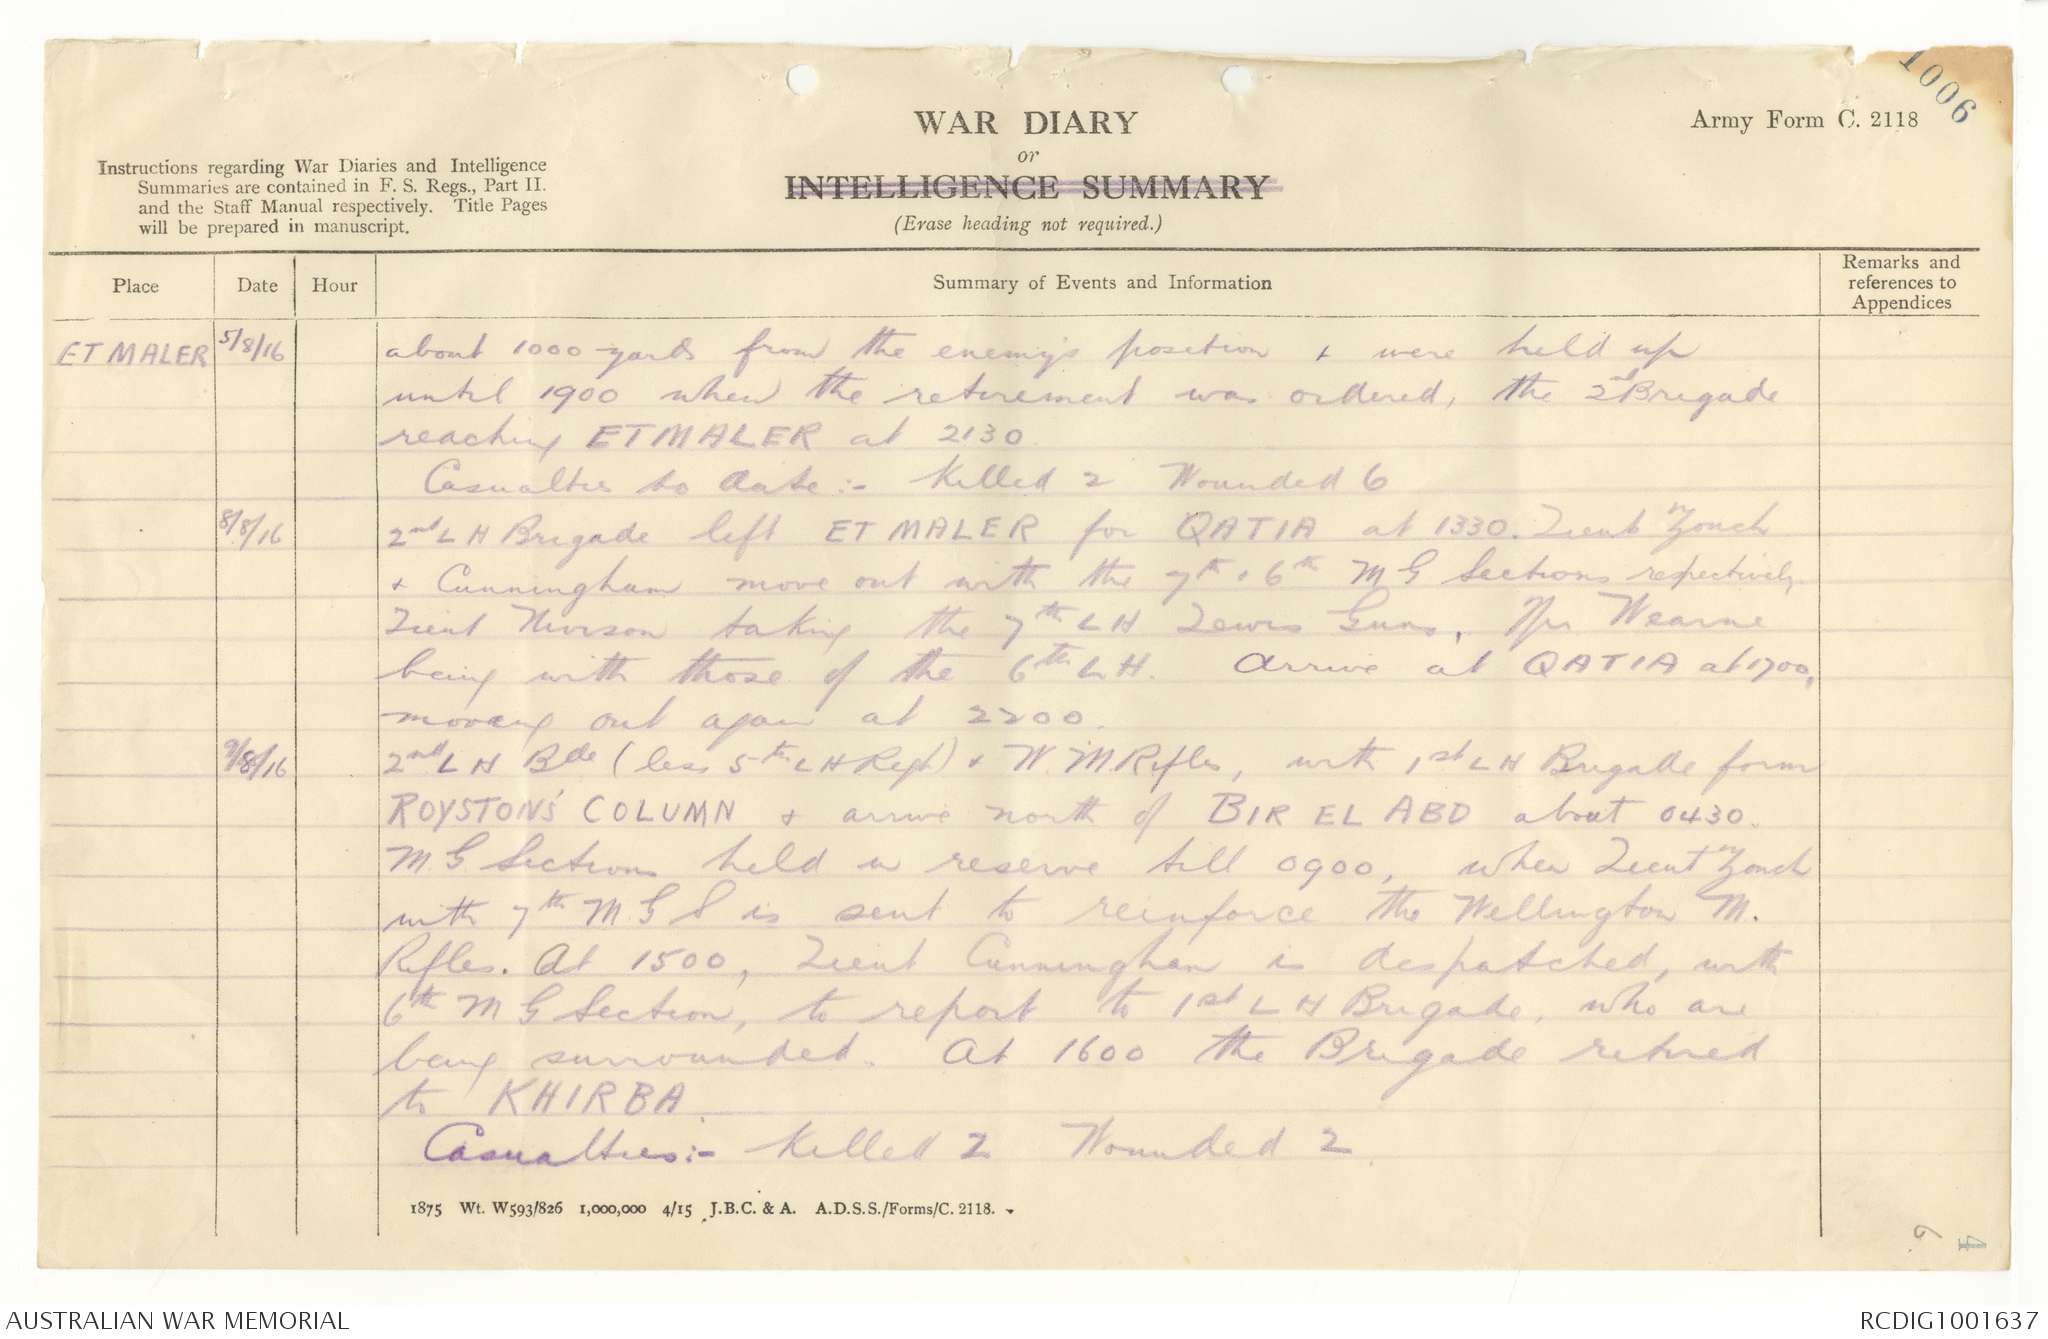 1006
WAR DIARY
or
INTELLIGENCE SUMMARY
(Erase heading not required.)
Army Form C. 2118
Instructions regarding War Diaries and Intelligence
Summaries are contained in F. S. Regs., Part II.
and the Staff Manual respectively. Title Pages
will be prepared in manuscript.
Place Date Hour Summary of Events and Information Remarks and references to Appendices
ET MALER 5/8/16 about 1000 yards from the enemy's position + were held up
until 1900 when the retirement was ordered, the 2nd Brigade
reaching ET MALER at 2130.
Casualties to date :- Killed 2 Wounded 6
8/8/16 2nd L H Brigade left ET MALER for QATIA at 1330. Lieuts Zouch
+ Cunningham move out with the 7th + 6th M G Sections respectively,
Lieut Nivison taking the 7th L H Lewis Guns, Mr Wearne
being with those of the 6th L H. Arrive at QATIA at 1700,
moving out again at 2200.
9/8/16 2nd L H Bde (less 5th L H Regt) + W. M Rifles, with 1st L H Brigade form
ROYSTON'S COLUMN + arrive north of BIR EL ABD about 0430.
M G Sections held in reserve till 0900, when Lieut Zouch
with 7th M G S is sent to reinforce the Wellington M.
Rifles. At 1500, Lieut Cunningham is despatched, with
6th M G Section, to report to 1st L H Brigade, who are
being surrounded. At 1600 the Brigade retired
to KHIRBA.
Casualties :- Killed 2 Wounded 2.
1875 Wt. W593/826 1,000,000 4/15 J.B.C. & A. A.D.S.S./Forms/C. 2118.
4
AUSTRALIAN WAR MEMORIAL
RCDIG1001637